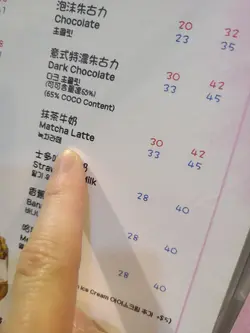 泡沫朱古力
Chocolate
초콜릿
20 32
23 35
意式特濃朱古力
Dark Chocolate
다크 초콜릿
(可可含量65%)
(65% COCO Content)
30 42
33 45
抹茶牛奶
Matcha Latte
녹차라떼
30 42
33 45
士多
Milk
딸기
28 40
28 40
28 40
Ice Cream 아이스크림 추가 +$5)